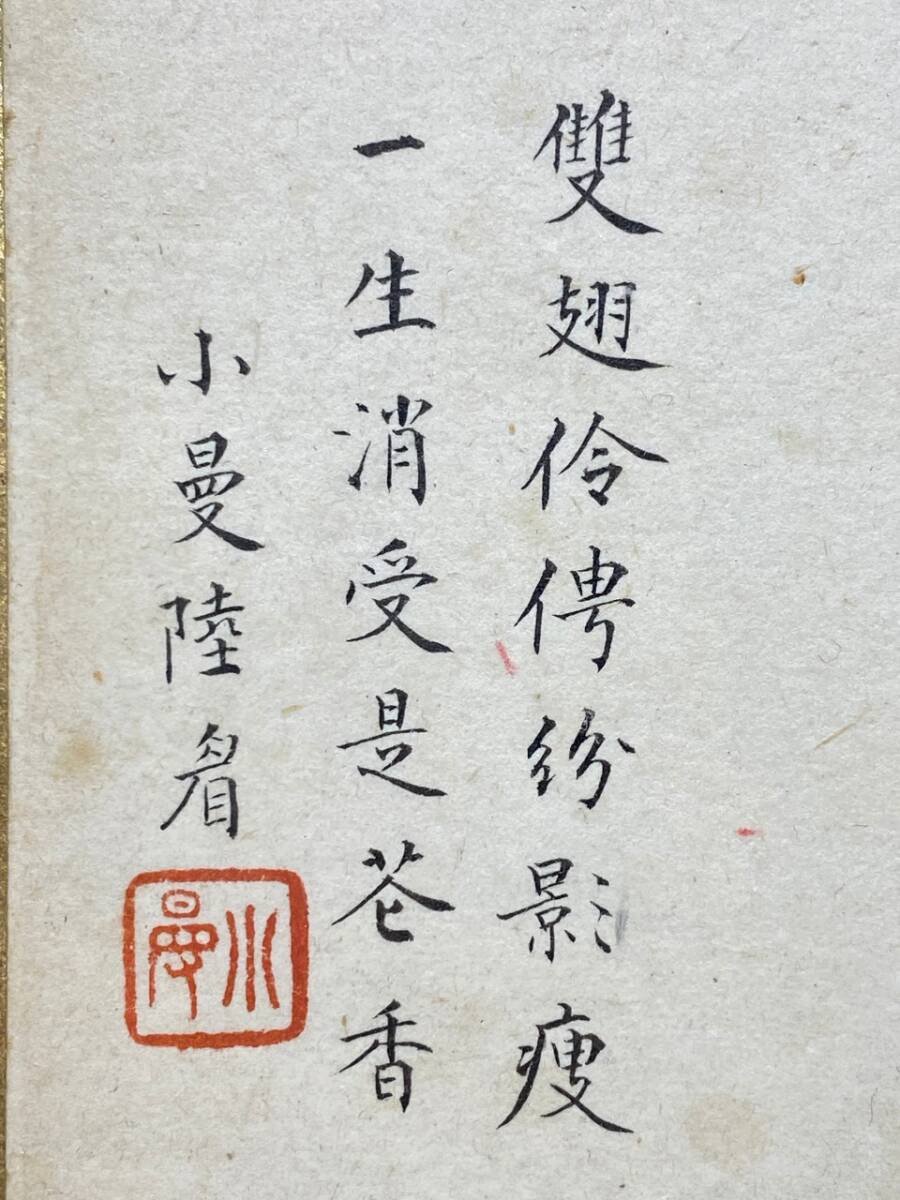 雙翅伶俜紛影瘦
一生消受是苍香
小曼陸眉
小曼